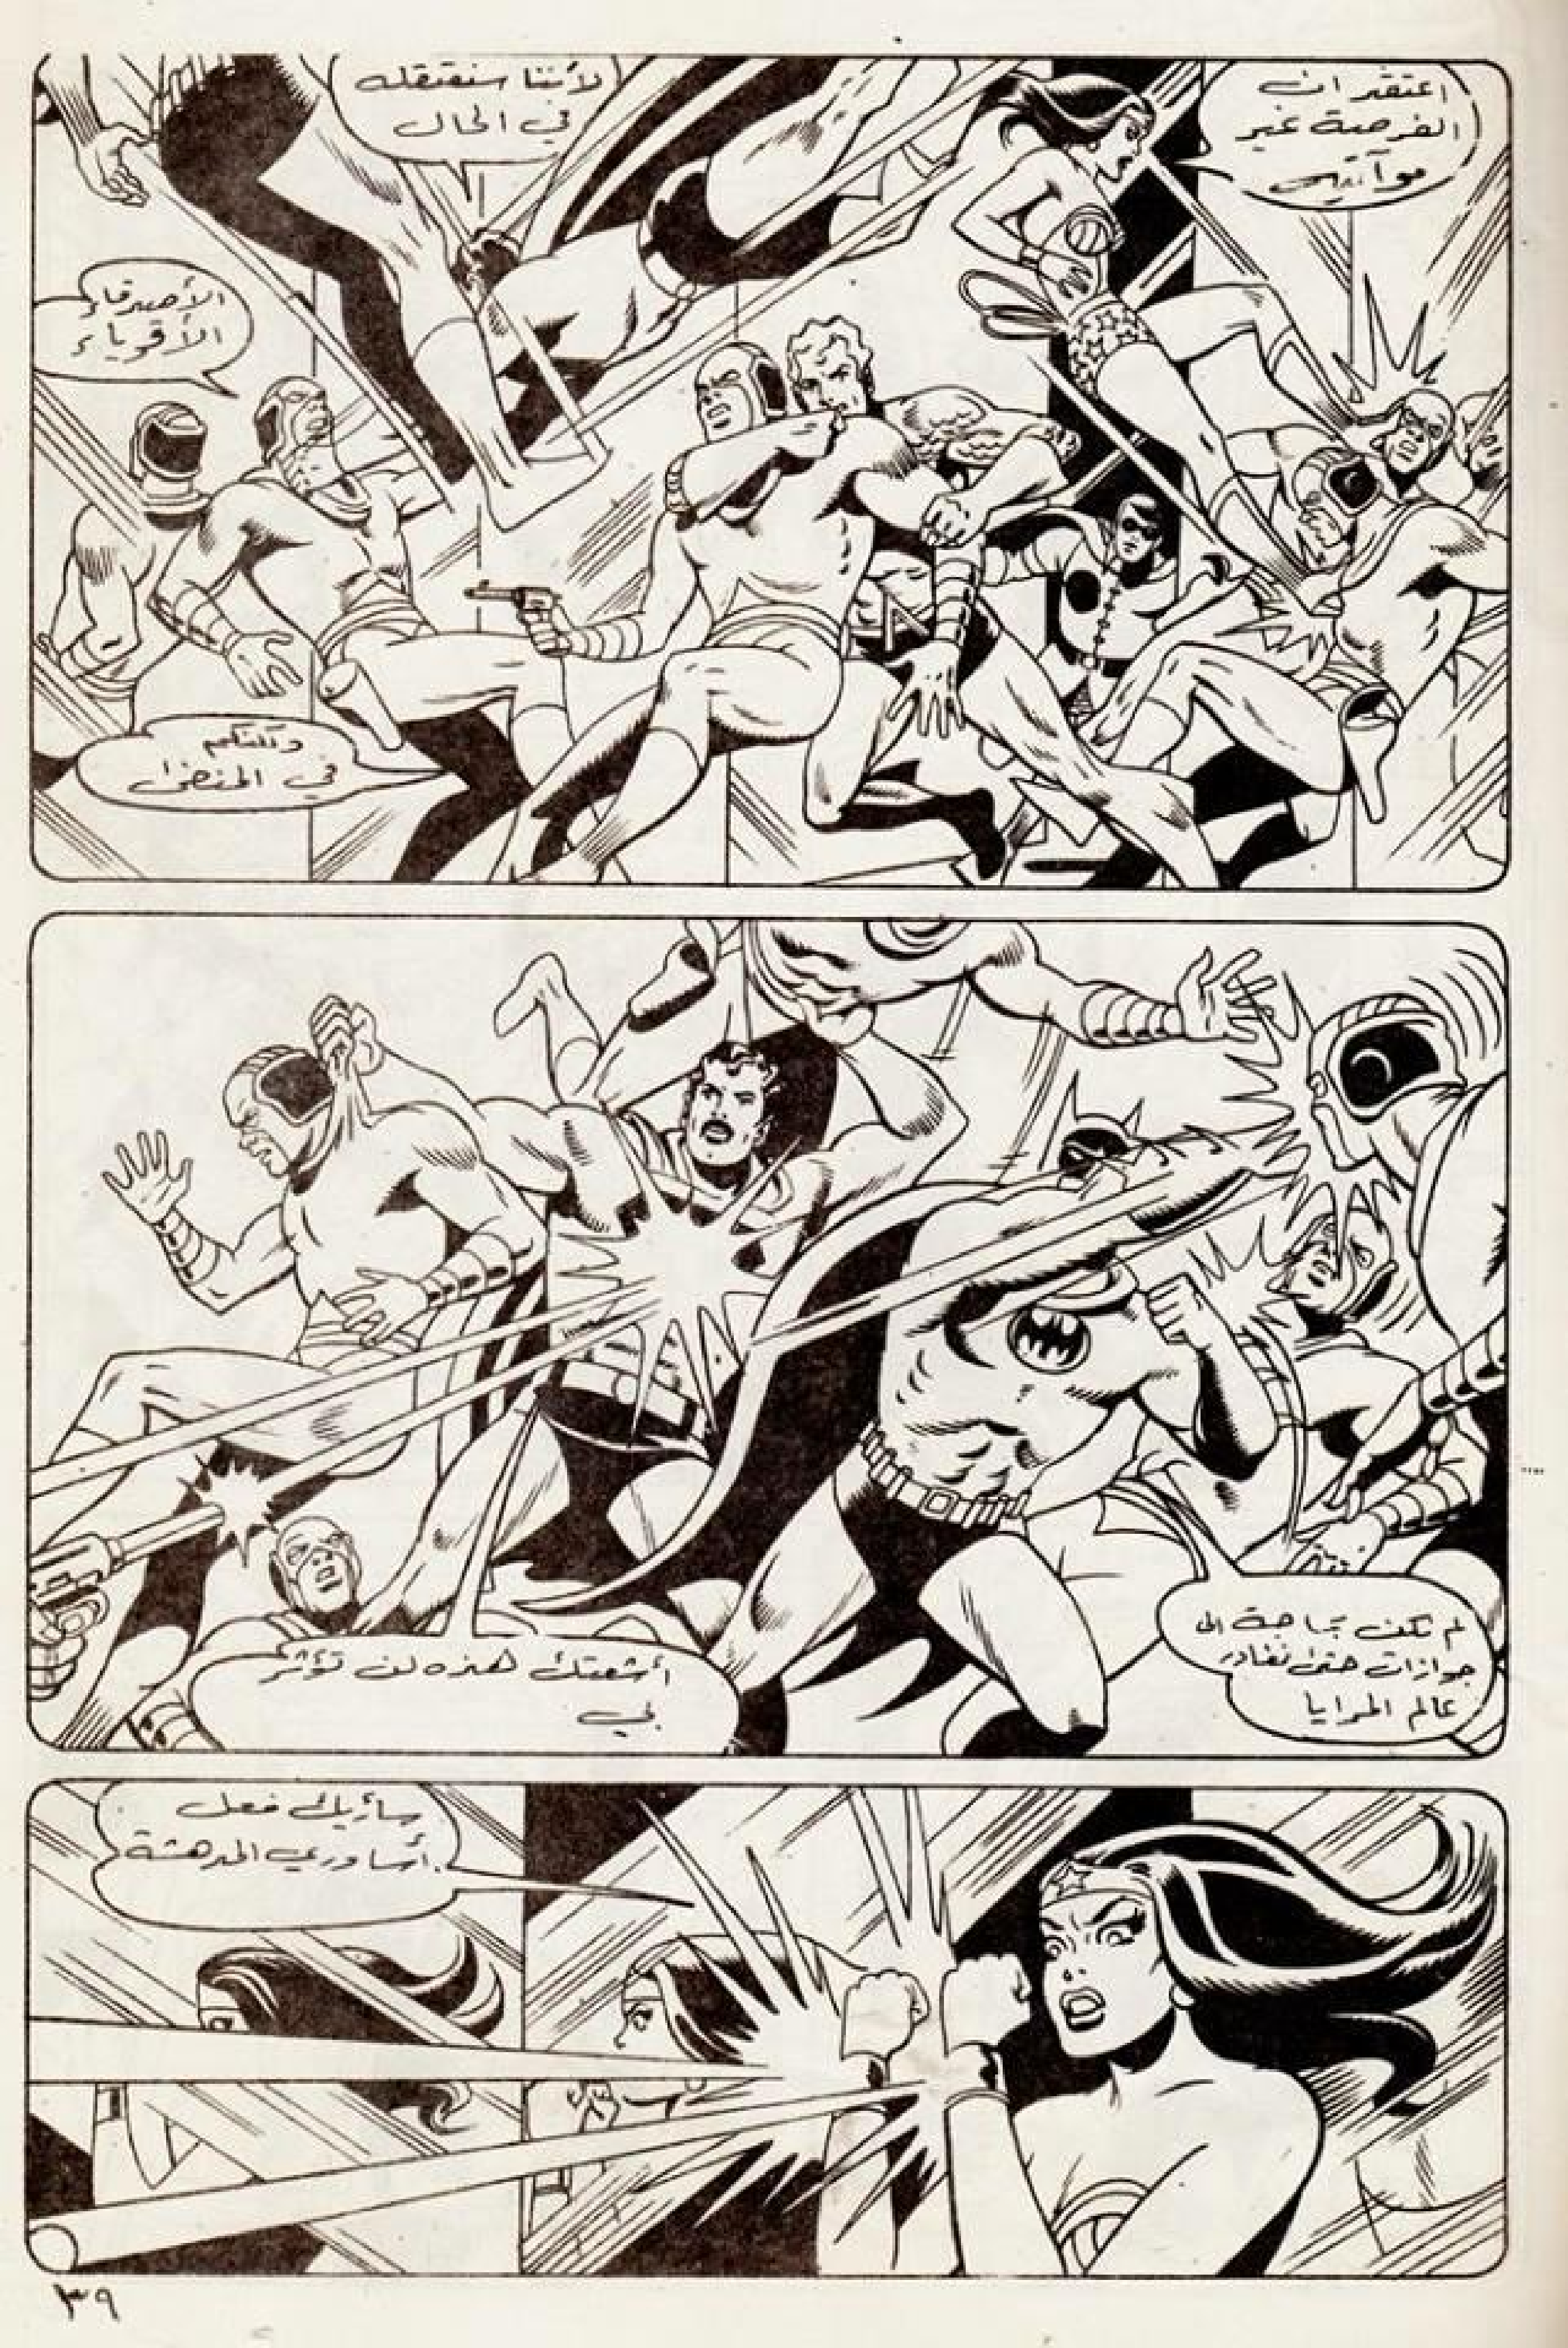 اعتقد ان
الفرصة غير
مؤاتية
لأننا سنعتقله
في الحال
الأصدقاء
الأقوياء
ولكنكم
في المنضر
لم نكن بحاجة الى
جوازات حتى نغادر
عالم المرايا
أشعتك هذه لن تؤثر
بي
سأريك فعل
أساوري المدهشة
٣٩